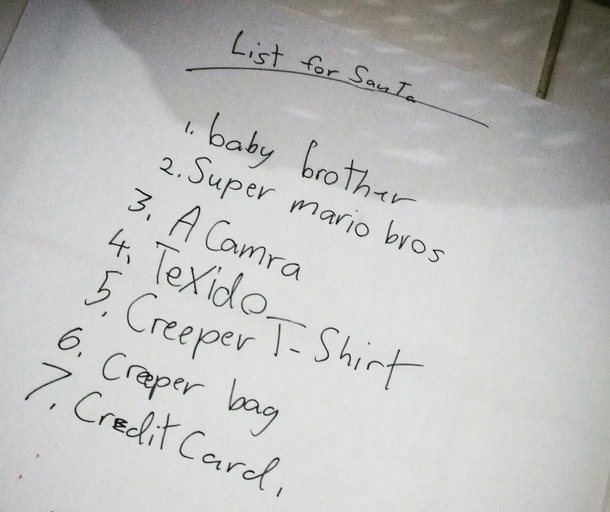 List for Santa
1. baby brother
2. Super mario bros
3. A Camra
4. Texido
5. Creeper T-Shirt
6. Creeper bag
7. Credit Card,